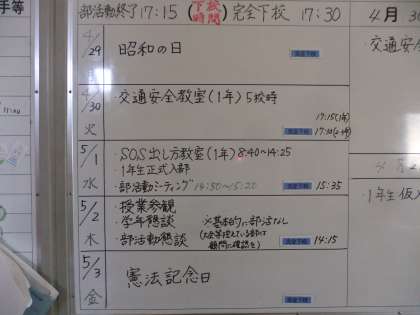 手等
部活動終了 17:15 (下校時間) 完全下校 17:30
4/29 昭和の日
完全下校
4/30 火 ・交通安全教室(1年) 5校時
17:15(1年)
完全下校
5/1 水 ・SOS出し方教室(1年) 8:40~14:25
・1年生正式入部
・部活動ミーティング 14:50~15:20 完全下校 15:35
5/2 木 ・授業参観
・学年懇談 ※基本的に部活なし
・部活動懇談
顧問に確認を) 完全下校 14:15
5/3 金 憲法記念日
完全下校
4月
・交通安全
・1年生仮入